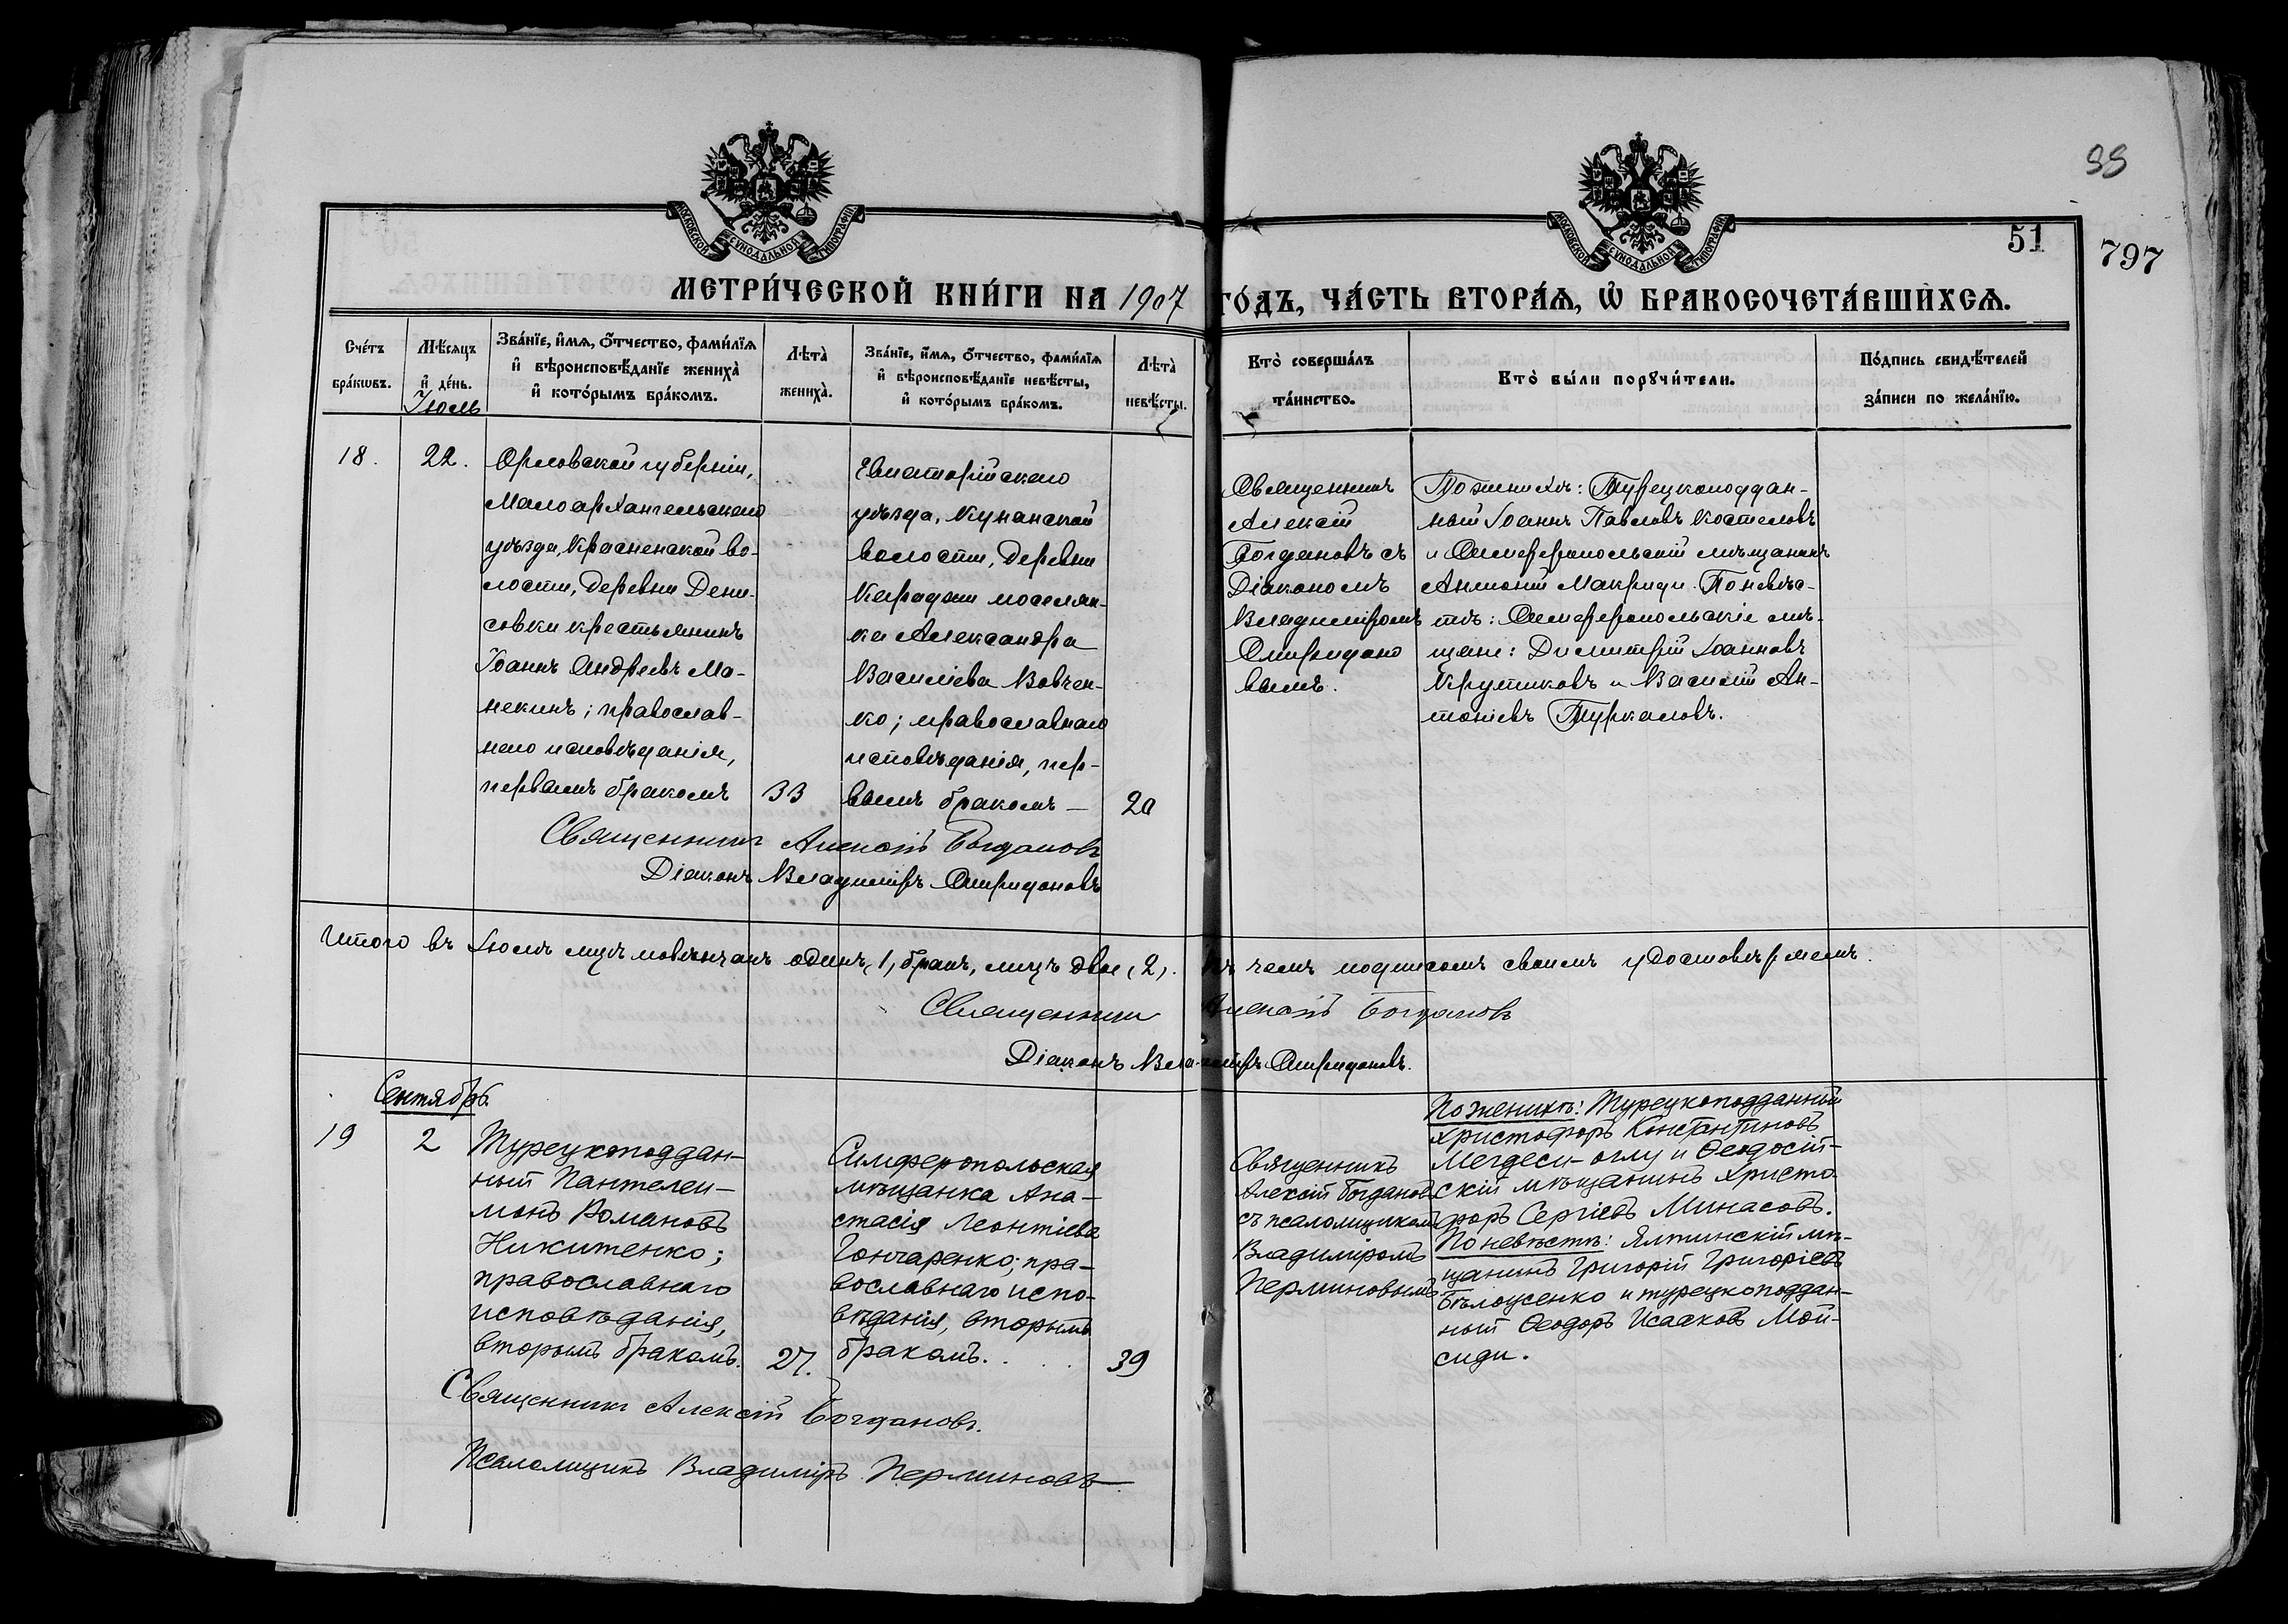 99
51
797
МОСКОВСКОЙ СѴНОДАЛЬНОЙ ТИПОГРАФІИ
МОСКОВСКОЙ СѴНОДАЛЬНОЙ ТИПОГРАФІИ
МЕТРИ́ЧЕСКОЙ КНИ́ГИ НА 1907 ГО́ДЪ, ЧА́СТЬ ВТОРА́Ѧ, Ѽ БРАКОСОЧЕТА́ВШИХСѦ.
Сче́тъ
бра́кѡвъ.
Мѣ́сѧцъ
и҆ де́нь.
Іюль
Зва́нїе, и҆́мѧ, ѻ҆́тчество, фами́лїѧ
и҆ вѣроисповѣ́данїе жениха̀
и҆ кото́рымъ бра́комъ.
Лѣта̀
жениха̀.
Зва́нїе, и҆́мѧ, ѻ҆́тчество, фами́лїѧ
и҆ вѣроисповѣ́данїе невѣ́сты,
и҆ кото́рымъ бра́комъ.
Лѣта̀
невѣ́сты.
Кто̀ соверша́лъ
та́инство.
Кто̀ бы́ли порꙋчи́тели.
По́дпись свидѣ́телей
за́писи по жела́нїю.
18.
22.
Орловской губерніи,
Малоархангельскаго
уѣзда, Красненской во-
лости, деревни Дени-
совки крестьянинъ
Іоаннъ Андреевъ Ма-
некинъ; православ-
наго исповѣданія,
первымъ бракомъ
33
Евпаторійскаго
уѣзда, Кунанской
волости, деревни
Караджи поселян-
ка Александра
Василіева Вовчен-
ко; православнаго
исповѣданія, пер-
вымъ бракомъ —
20
Священникъ
Алексій
Богдановъ съ
Діакономъ
Владиміромъ
Спиридоно
вымъ.
По женихѣ: Турецкоподдан-
ный Іоаннъ Павловъ Костеловъ
и Симферопольскій мѣщанинъ
Антоній Макриди. По невѣс-
тѣ: Симферопольскіе мѣ-
щане: Димитрій Іоанновъ
Крутиковъ и Василій Ан-
тоніевъ Туркаловъ.
Священникъ Алексій Богдановъ
Діаконъ Владиміръ Спиридоновъ
Итого въ Іюлѣ м-цѣ повѣнчанъ одинъ, (1) бракъ, лицъ двое (2). Въ чемъ подписомъ своимъ удостовѣряемъ.
Священникъ Алексій Богдановъ
Діаконъ Владиміръ Спиридоновъ.
Сентябрь.
19
2
Турецкоподдан-
ный Пантелеи-
монъ Романовъ
Никитенко;
православнаго
исповѣданія,
вторымъ бракомъ.
27.
Симферопольская
мѣщанка Ана-
стасія Леонтіева
Гончаренко; пра-
вославнаго испо-
вѣданія, вторымъ
бракомъ.
39
Священникъ
Алексій Богдановъ
съ псаломщикомъ
Владиміромъ
Перминовымъ
По женихѣ: Турецкоподданный
Христофоръ Константиновъ
Мегдеси-оглу и Ѳеодосій-
скій мѣщанинъ Христо-
форъ Сергіевъ Минасовъ.
По невѣстѣ: Ялтинскій мѣ-
щанинъ Григорій Григоріевъ
Бѣлоусенко и турецкоподдан-
ный Ѳеодоръ Исааковъ Мои-
сиди.
Священникъ Алексій Богдановъ.
Псаломщикъ Владиміръ Перминовъ